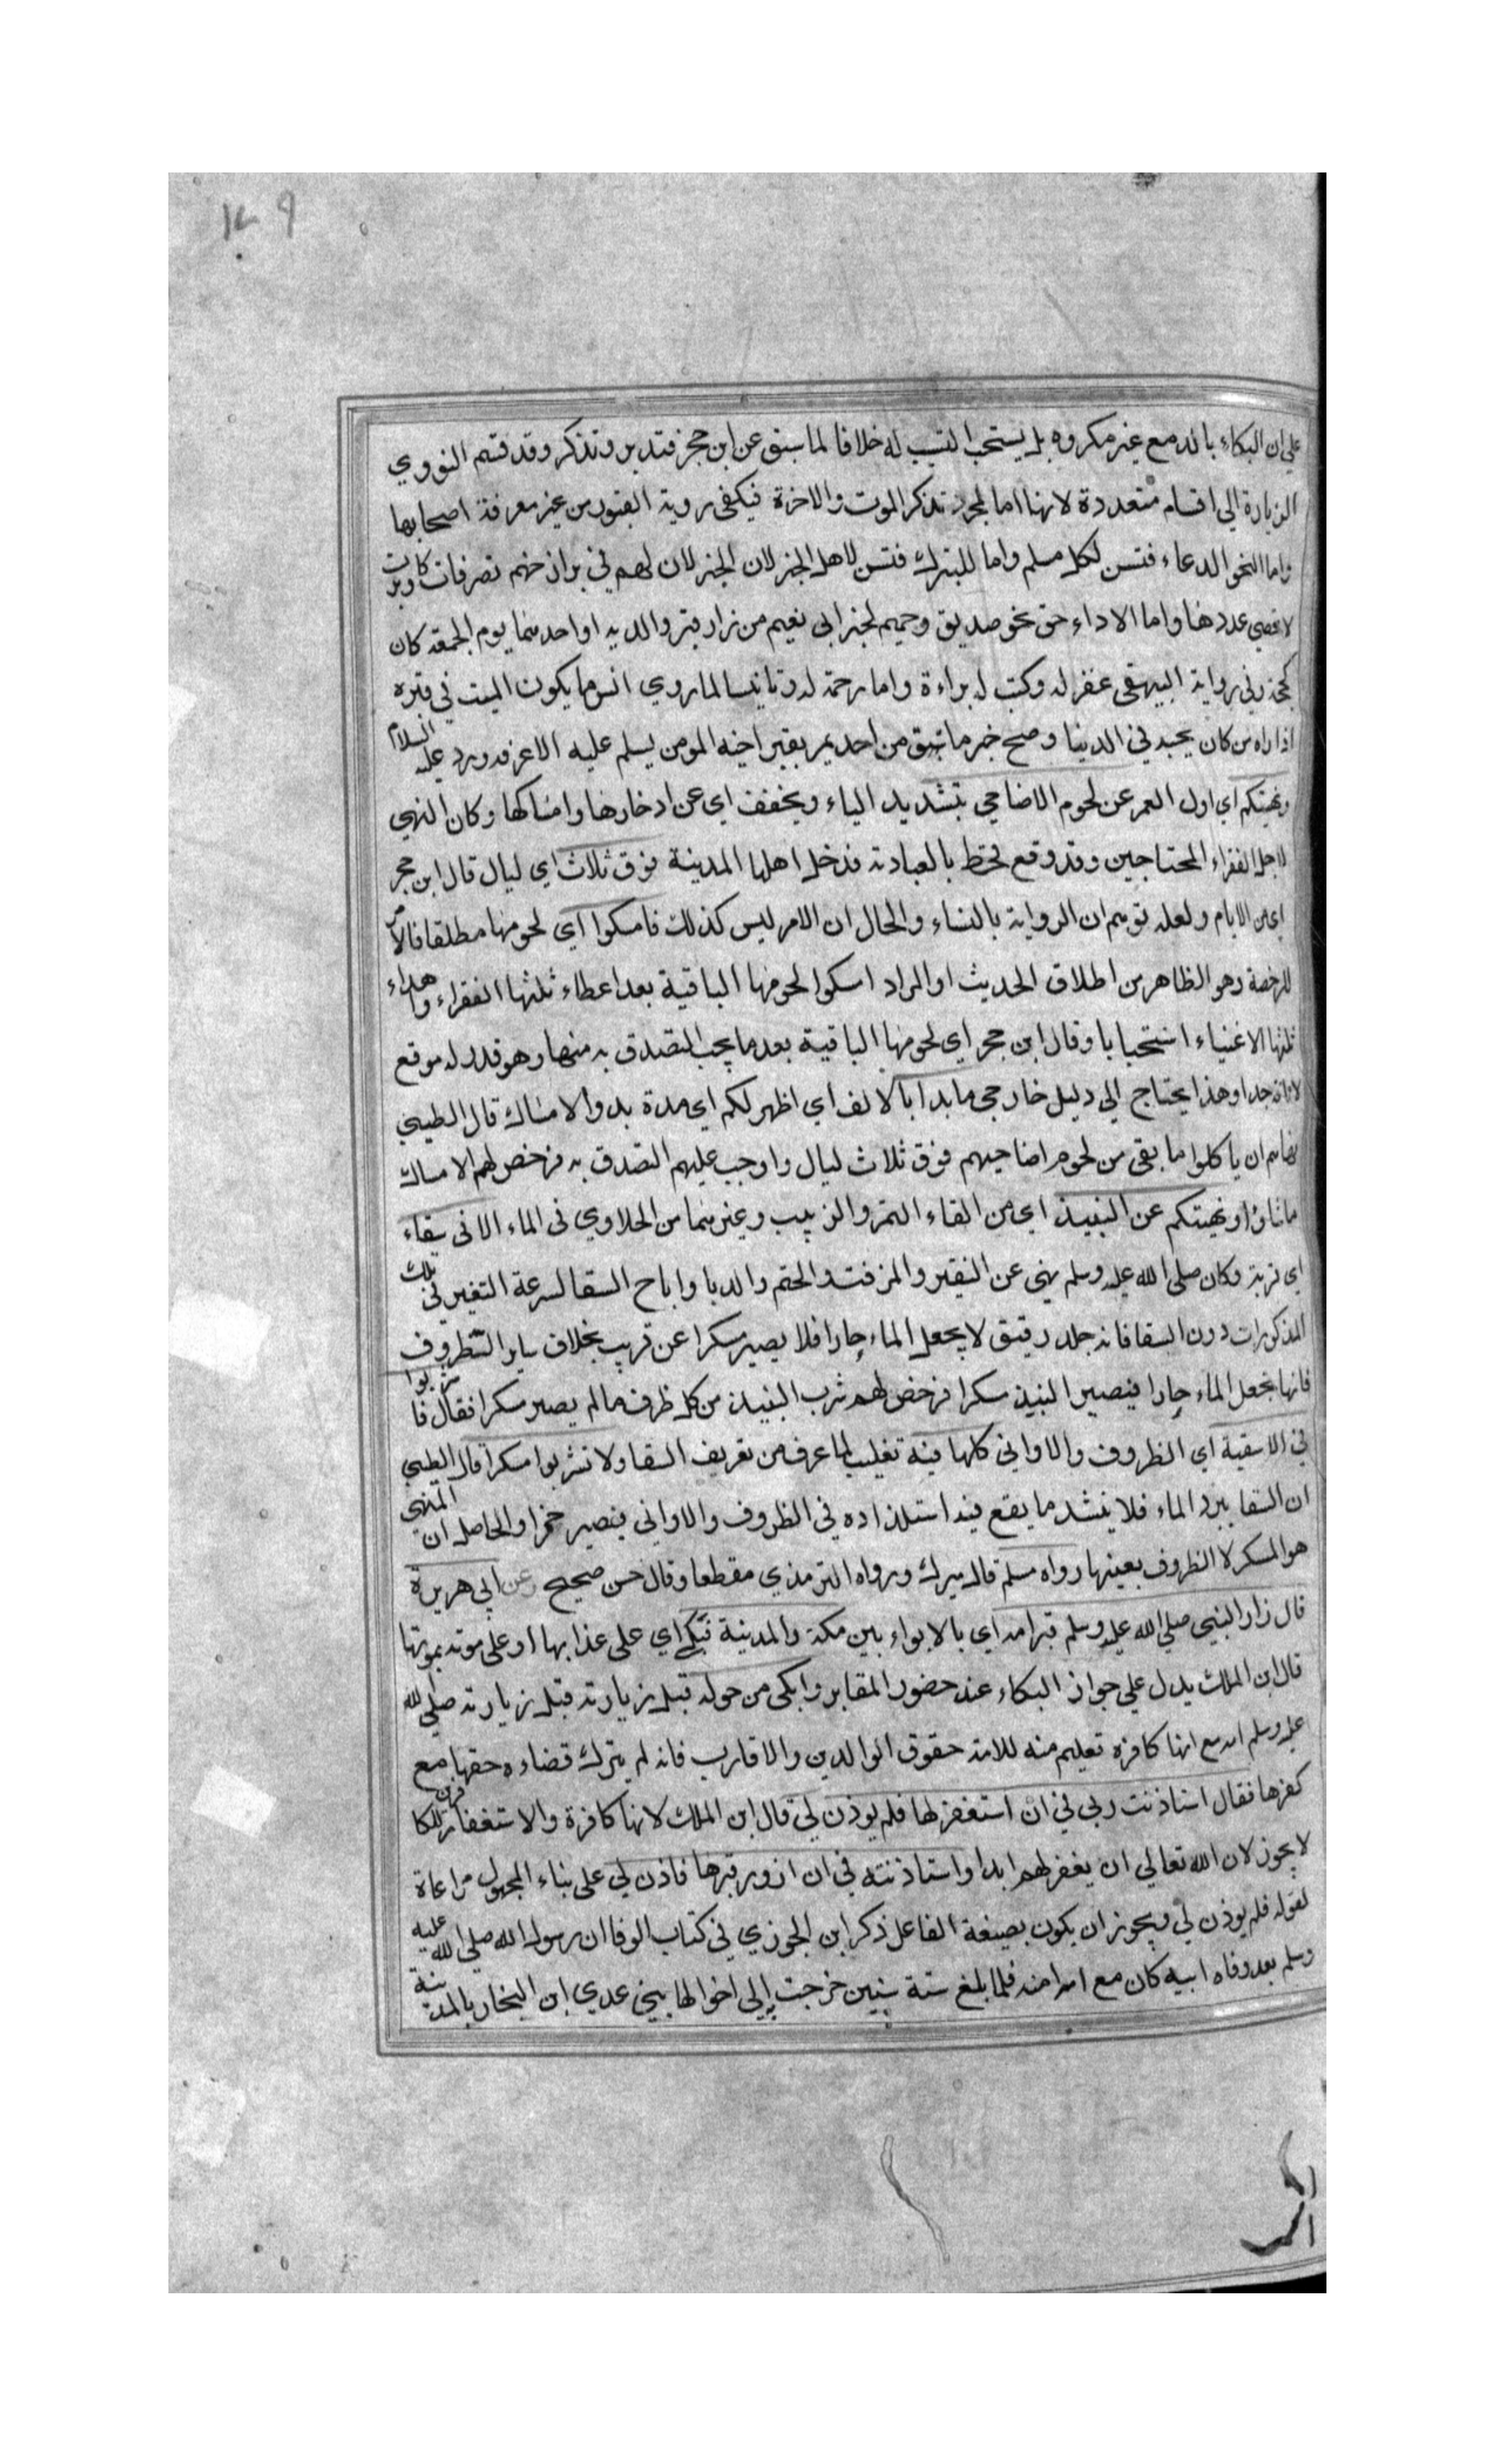 ١٤٩
على ان البكاء بالدمع غير مكروه بل يستحب التسبب له خلافا لما سبق عن ابن حجر فتدبر وتذكر وقد قسم النووي
الزيارة الى اقسام متعددة لانها اما لمجرد تذكر الموت والاخرة فيكفي روية القبور من غير معرفة اصحابها
واما النحو الدعاء فتسن لكل مسلم واما للتبرك فتسن لاهل الخير لان الخير لان لهم في برازخهم تصرفات وبركات
لا تحصي عددها واما الاداء حق نحو صديق وحميم لخبر ابي نعيم من زار قبر والديه او احدهما يوم الجمعة كان
كحجة وفي رواية البيهقي غفر له وكتب له براءة واما رحمة له وتانيسا لما روي انس ما يكون الميت في قبره
اذا راه من كان يحبه في الدنيا وصح خبر ما من احد يمر بقبر اخيه المومن يسلم عليه الا عرفه ورد عليه السلام
ونهيتكم اي اول العمر عن لحوم الاضاحي بتشديد الياء ويخفف اي عن ادخارها وامساكها وكان النهي
لاجل الفقراء المحتاجين وقد وقع قحط بالبادية فدخل اهلها المدينة فوق ثلاث اي ليال قال ابن حجر
اي من الايام ولعله توهم ان الرواية بالتاء والحال ان الامر ليس كذلك فامسكوا اي لحومها مطلقا فالامر
للرخصة وهو الظاهر من اطلاق الحديث او المراد امسكوا لحومها الباقية بعد اعطاء ثلثها الفقراء واهداء
ثلثها الاغنياء استحبابا وقال ابن حجر اي لحومها الباقية بعد ما يجب التصدق به منها وهو قدر له موقع
لا تافه جدا وهذا يحتاج الى دليل خارجي ما بدا بالالف اي اظهر لكم اي مدة بدو الامساك قال الطيبي
نهاهم ان ياكلوا ما بقي من لحوم اضاحيهم فوق ثلاث ليال واوجب عليهم التصدق به فرخص لهم الامساك
ما شاؤا ونهيتكم عن النبيذ اي من القاء التمر والزبيب وغيرهما من الحلاوي في الماء الا في سقاء
اي قربة وكان صلى الله عليه وسلم نهي عن النقير والمزفت والحنتم والدبا واباح السقا لسرعة التغير في تلك
المذكورات دون السقا فانه جلد رقيق لا يجعل الماء حارا فلا يصير مسكرا عن قريب بخلاف ساير الظروف
فانها تجعل الماء حارا فيصير النبيذ مسكرا فرخص لهم شرب النبيذ من كل ظرف ما لم يصير مسكرا فقال فاشربوا
في الاسقية اي الظروف والاواني كلها فيه تغليب لما عرف من تعريف السقا ولا تشربوا مسكرا قال الطيبي
ان السقا يبرد الماء فلا يشتد ما يقع فيه اشتداده في الظروف والاواني فيصير خمرا والحاصل ان المنهي
هو المسكر لا الظروف بعينها رواه مسلم قال ميرك ورواه الترمذي مقطعا وقال حسن صحيح وعن ابي هريرة
قال زار النبي صلى الله عليه وسلم قبر امه اي بالابواء بين مكة والمدينة فبكي اي على عذابها او على موته بموتها
قال ابن الملك يدل على جواز البكاء عند حضور المقابر وابكى من حوله قبل زيارته قبل زيارته صلى الله
عليه وسلم امه مع انها كافرة تعليم منه للامة حقوق الوالدين والاقارب فانه لم يترك قضاء حقها مع
كفرها فقال استاذنت ربي في ان استغفر لها فلم يوذن لي قال ابن الملك لانها كافرة والاستغفار للكافرين
لا يجوز لان الله تعالى ان يغفر لهم ابدا واستاذنته في ان ازور قبرها فاذن لي على بناء المجهول مراعاة
لقوله فلم يوذن لي ويجوز ان يكون بصيغة الفاعل ذكر ابن الجوزي في كتاب الوفا ان رسول الله صلى الله عليه
وسلم بعد وفاه ابيه كان مع امه امنه فلما بلغ ستة سنين خرجت الى اخوالها بني عدي ابن النجار بالمدينة